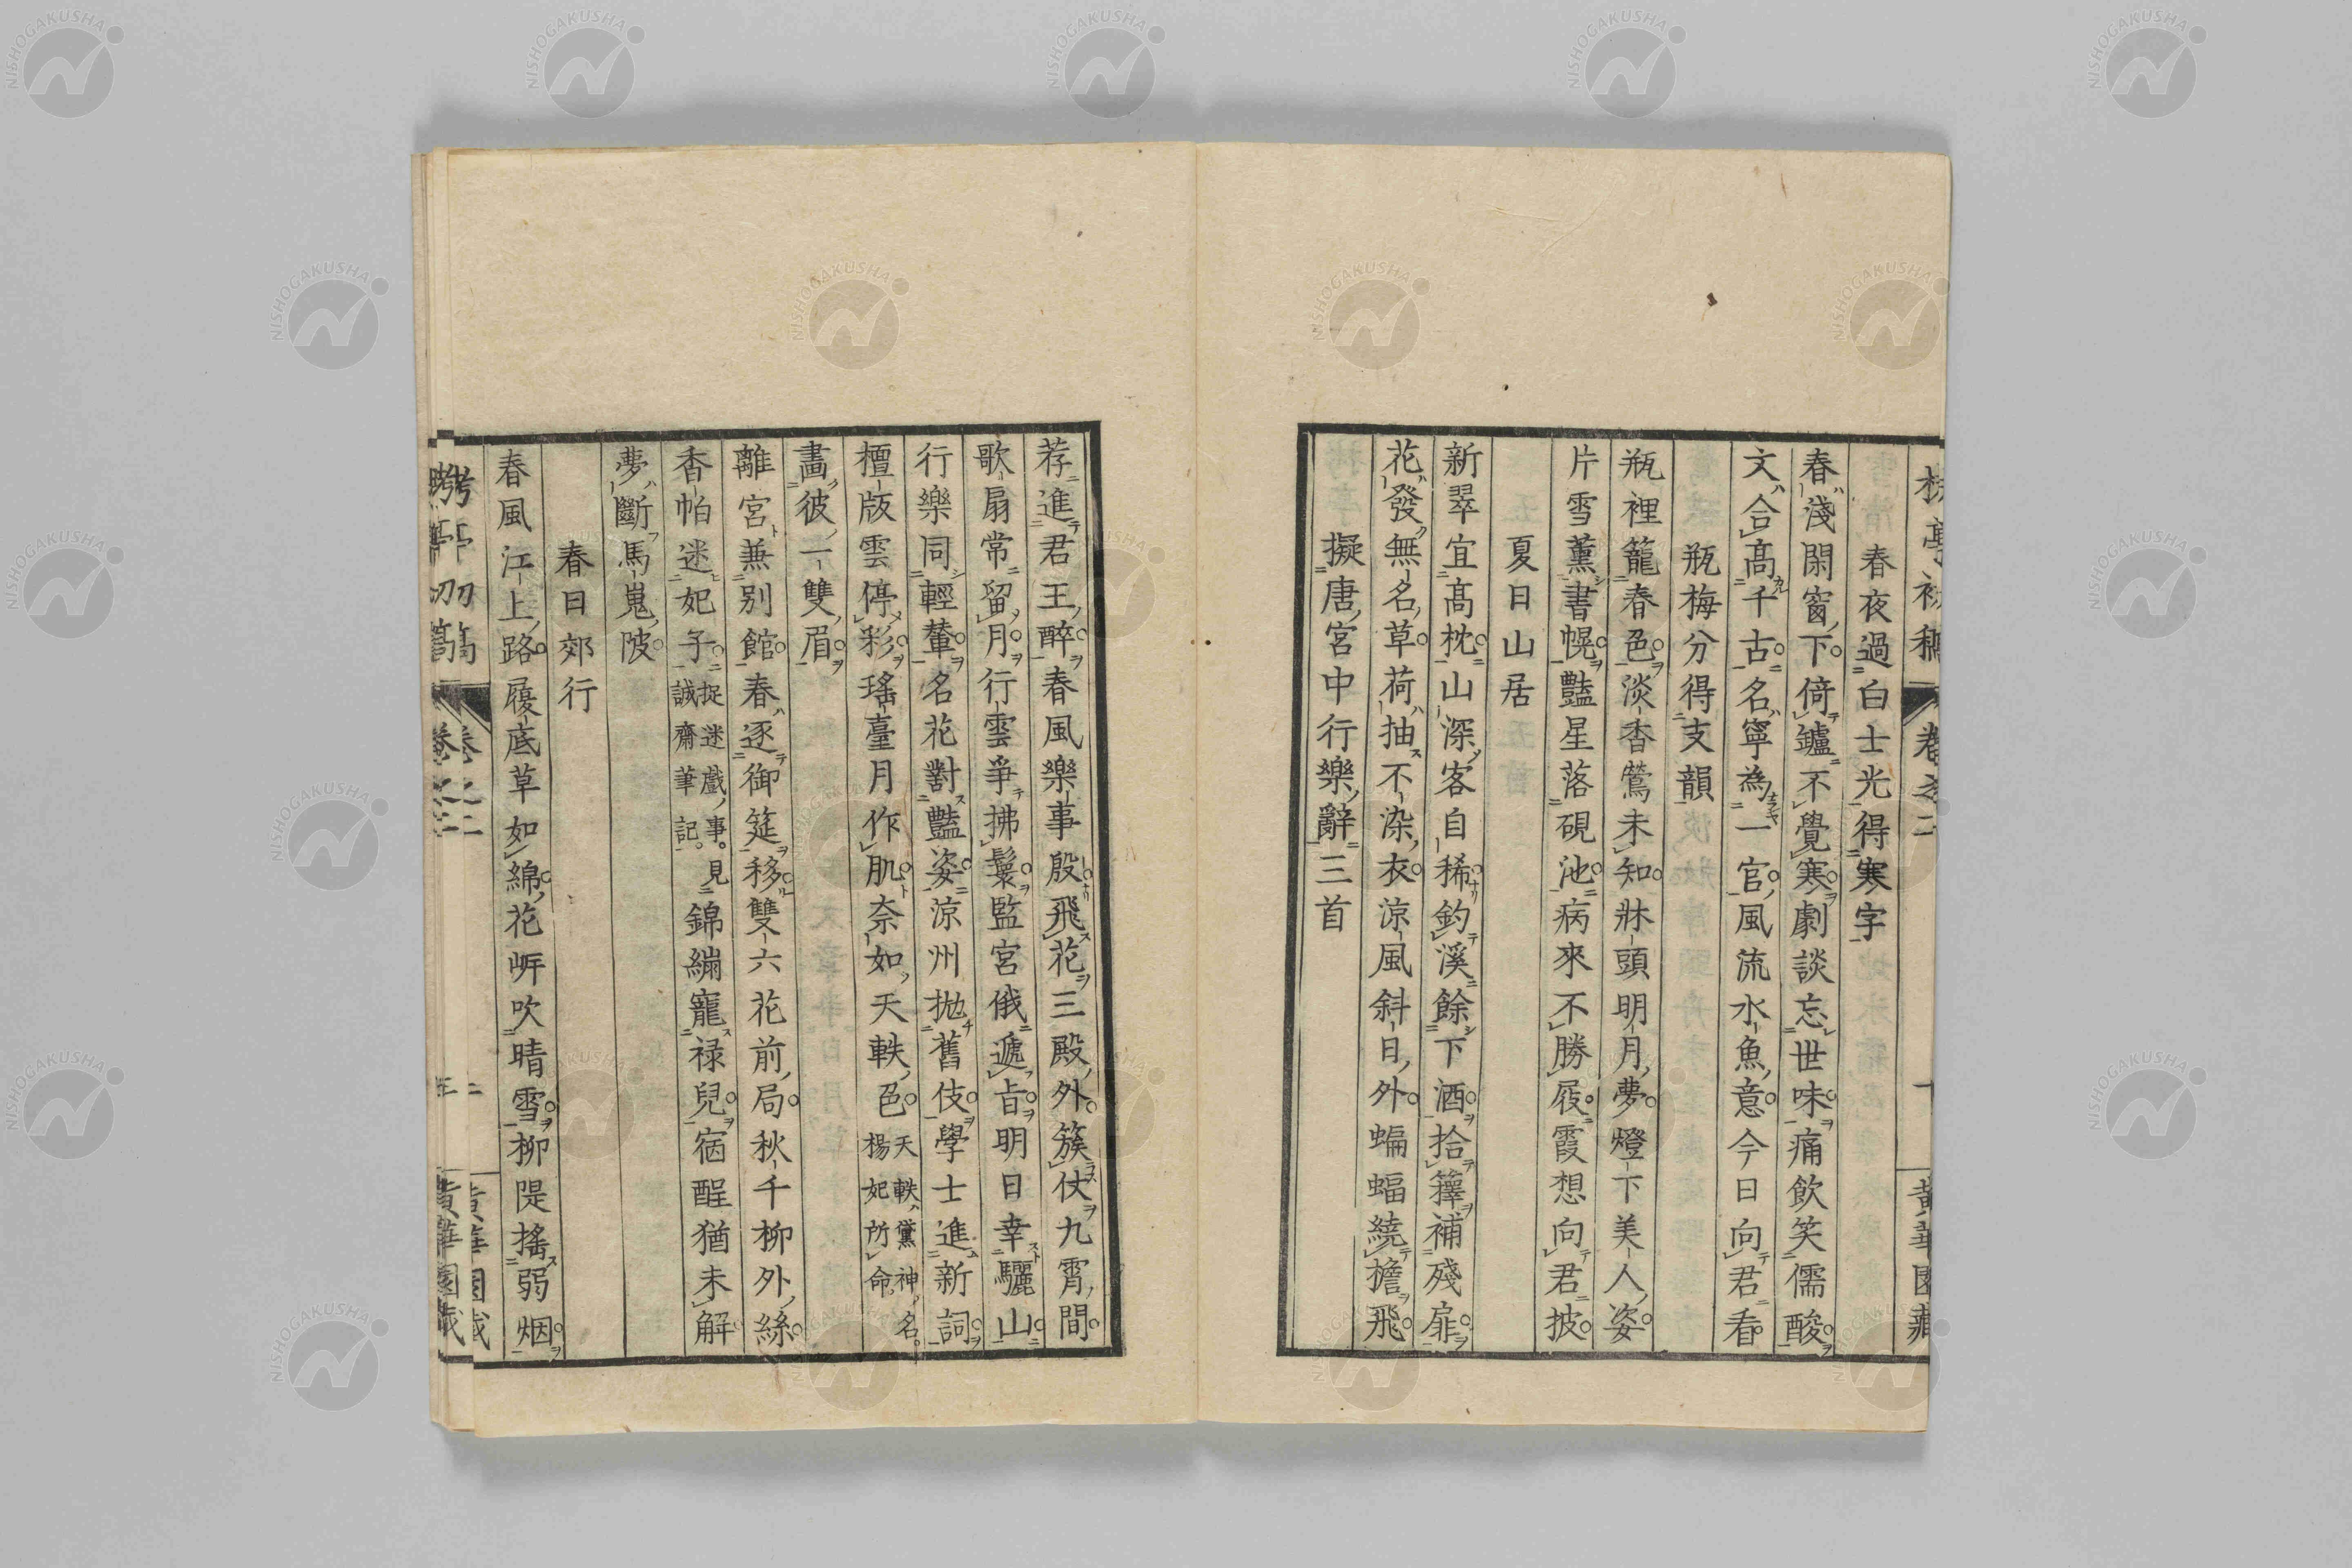 春夜過白士光得寒字
春淺閑窗下倚鑪不覺寒劇談忘世味痛飲笑儒酸
文合高千古名寧為一官風流水魚意今日向君看
瓶梅分得支韻
瓶裡籠春色淡香鶯未知牀頭明月夢燈下美人姿
片雪薰書幌豔星落硯池病來不勝屐霞想向君披
夏日山居
新翠宜高枕山深客自稀釣溪餘下酒拾籜補殘扉
花發無名草荷抽不染衣涼風斜日外蝙蝠繞檐飛
擬唐宮中行樂辭三首
荐進君王醉春風樂事殷飛花三殿外簇仗九霄間
歌扇常留月行雲爭拂鬟監宮俄遞旨明日幸驪山
行樂同輕輦名花對豔姿涼州拋舊伎學士進新詞
檀版雲停彩瑤臺月作肌奈如天軼色天軼黛神名
楊妃所命
畫彼一雙眉
離宮兼別館春逐御筵移雙六花前局秋千柳外絲
香帕迷妃子捉迷戲事見
誠齋筆記錦繃寵祿兒宿酲猶未解
夢斷馬嵬陂
春日郊行
春風江上路履底草如綿花岍吹晴雪柳隄搖弱烟
卷之二
NISHOGAKUSHA